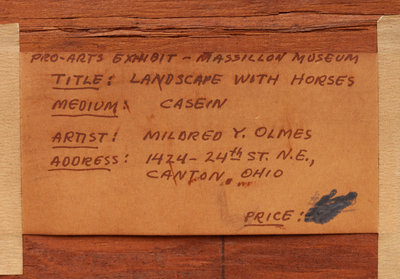 PRO-ARTS EXHIBIT - MASSILLON MUSEUM
TITLE: LANDSCAPE WITH HORSES
MEDIUM: CASEIN
ARTIST: MILDRED Y. OLMES
ADDRESS: 1424-24th ST. N.E.,
CANTON, OHIO
PRICE: